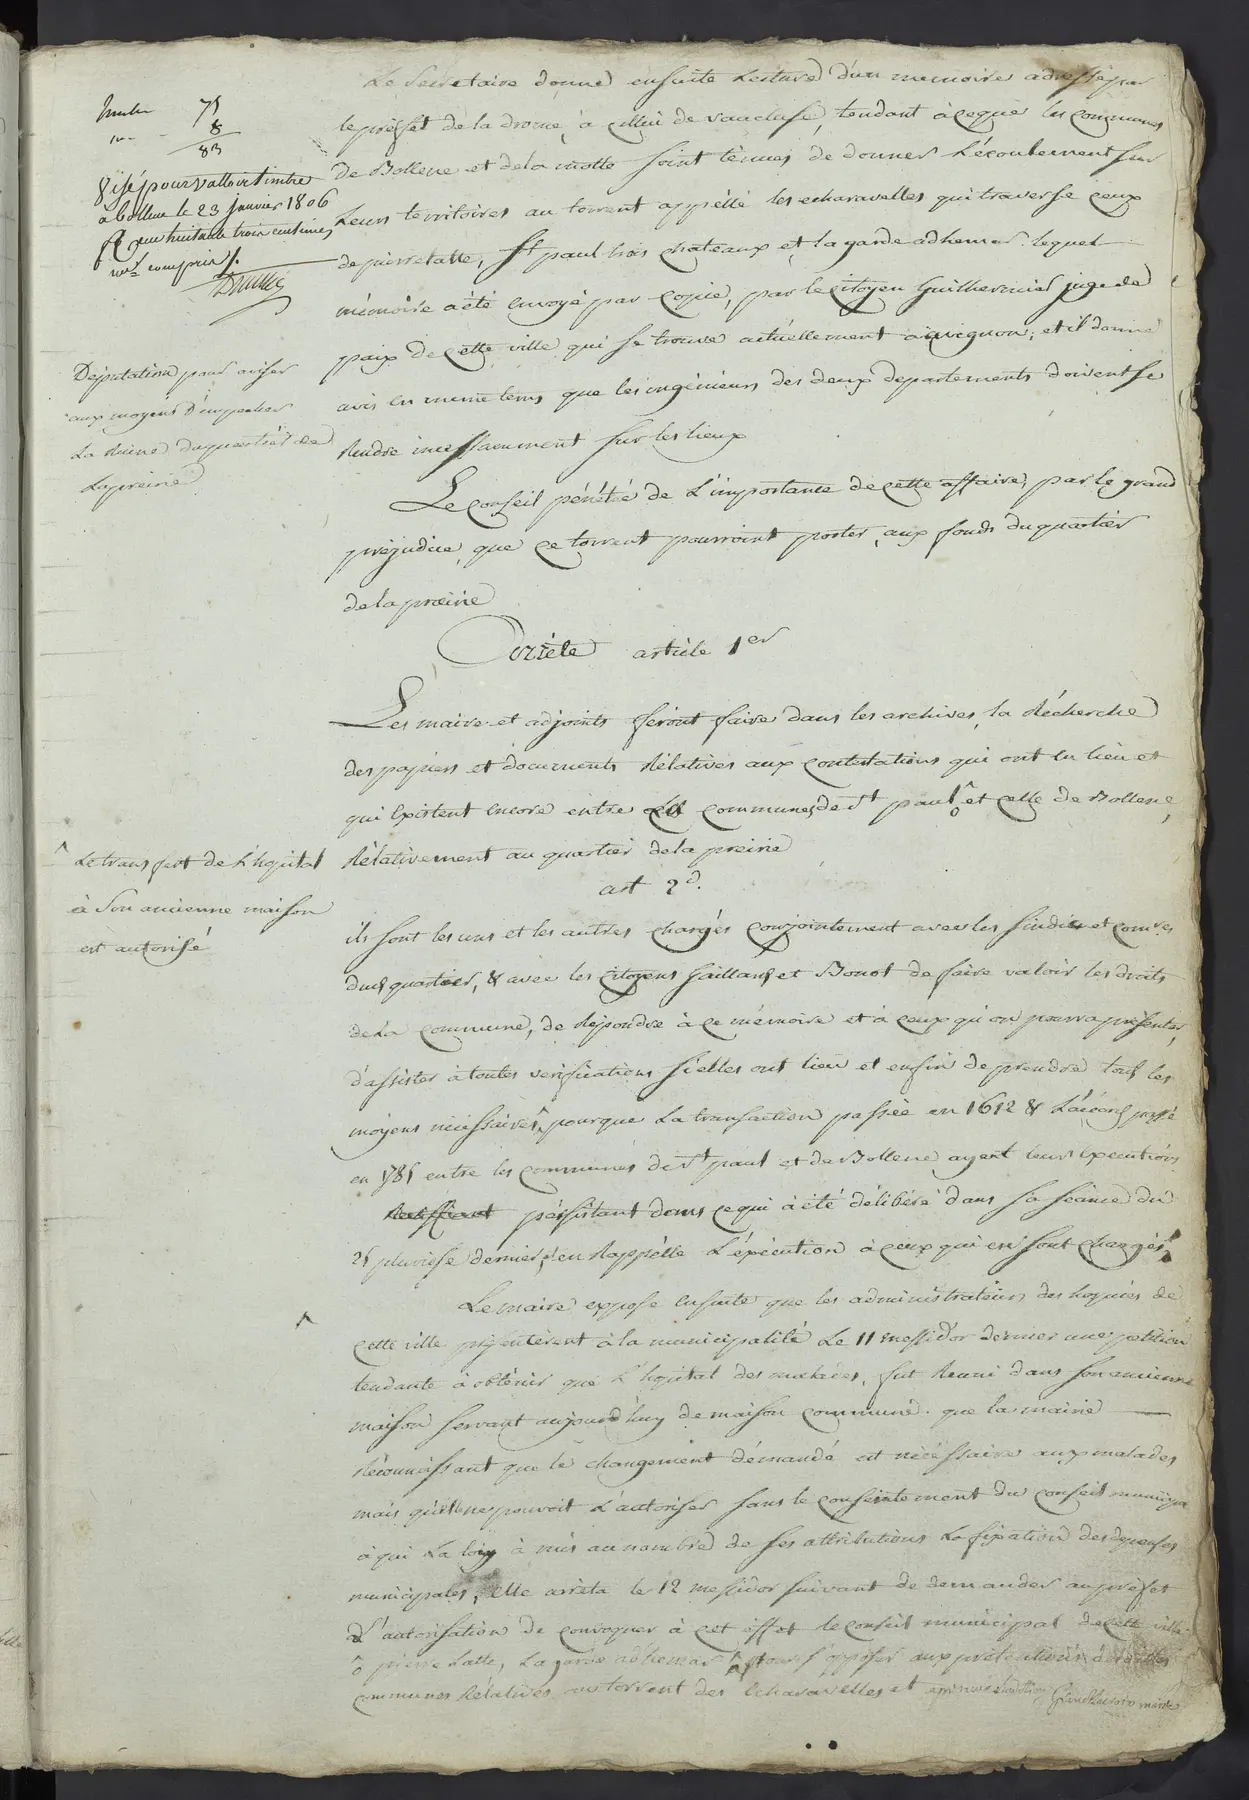 75
8
83
Visé pour valloir timbre
a bollene le 23 janvier 1806
Reçu huitante trois centimes
compris
Députation pour aviser
aux moyens d'empecher
La Ruine du quartier de
La preirie
^ Le transfert de L'hopital
à Son ancienne maison
est autorisé
Le Secretaire donne ensuite Lecture d'un memoire adressé par
le préfet de la drome, à cellui de vaucluse, tendant à ceque les communes
de Bollene et de la motte soint tenues de donner L'écoulement sur
Leurs territoires au torrent appéllé les echaravelles qui traverse ceux
de pierrelatte, St paul trois chateaux et la garde adhemar lequel
mémoire a été envoyé par copie, par le citoyen Guilhermier juge de
paix de cette ville qui se trouve actuellement à avignon; et il donne
avis en meme tems que les ingénieurs des deux departements doivent se
Rendre incessament sur les lieux
Le conseil pénétré de L'importance de cette affaire, par le grand
préjudice, que ce torrent pourroint porter, aux fonds du quartier
de la preirie
Arréte article 1er
Les maire et adjoints feront faire dans les archives, la Récherche
des papiers et documents Rélatives aux contestations qui ont eu lieu et
qui Existent encore entre les communes de St paul ^ et celle de Bollene,
Rélativement au quartier de la preirie
art 2d.
ils sont les uns et les autres chargés conjointement avec les sindics et comres
dud quartier, & avec les citoyens Gaillard et Bonot de faire valoir les droits
de La commune, de Répondre à ce mémoire et à ceux qu'on pourra présenter,
d'assister à toutes vérifications si elles ont lieu et enfin de prendre tous les
moyens nécessaires ^ pour que La transaction passée en 1612 & L'accord passé
en 1785 entre les communes de St paul et de Bollene ayent leur Exécutions
persistant dans ce qui à été délibéré dans sa séance du
25 pluviose dernier, en Rappélle L'éxécution à ceux qui en sont chargés
^ Le maire expose ensuite que les administrateurs des hospices de
cette ville présentérent à la municipalité Le 11 messidor dernier une pétition
tendante à obtenir que L'hopital des malades, fut Reuni dans son ancienne
maison servant aujourd'huy de maison commune. que la mairie
Réconnoissant que le changement démandé est nécéssaire aux malades
mais qu'elle ne pouvoit L'autoriser sans le consentement du conseil municipal
à qui La loy à mis au nombre de ses attributions La fixation des depenses
municipales, elle arreta le 12 messidor suivant de demander au préfet
L'autorisation de convoquer à cet éffet le conseil municipal de cette ville
pierrelatte, La garde adhemar pour s'opposer aux prétentions desdittes
communes Rélatives au torrent des Echaravelles et